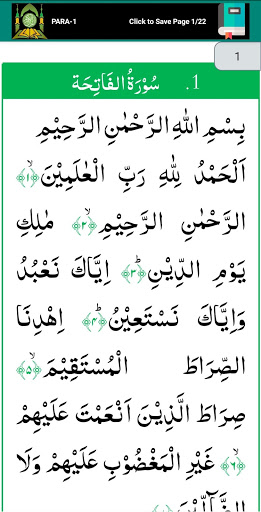 PARA-1 Click to Save Page 1/22
1
1. سُوْرَةُ الْفَاتِحَة
بِسْمِ اللّٰهِ الرَّحْمٰنِ الرَّحِيْمِ
اَلْحَمْدُ لِلّٰهِ رَبِّ الْعٰلَمِيْنَ ۙ﴿۱﴾
الرَّحْمٰنِ الرَّحِيْمِ ۙ﴿۲﴾ مٰلِكِ
يَوْمِ الدِّيْنِ ؕ﴿۳﴾ اِيَّاكَ نَعْبُدُ
وَاِيَّاكَ نَسْتَعِيْنُ ؕ﴿۴﴾ اِهْدِنَا
الصِّرَاطَ الْمُسْتَقِيْمَ ۙ﴿۵﴾
صِرَاطَ الَّذِيْنَ اَنْعَمْتَ عَلَيْهِمْ
ۙ﴿۶﴾ غَيْرِ الْمَغْضُوْبِ عَلَيْهِمْ وَلَا